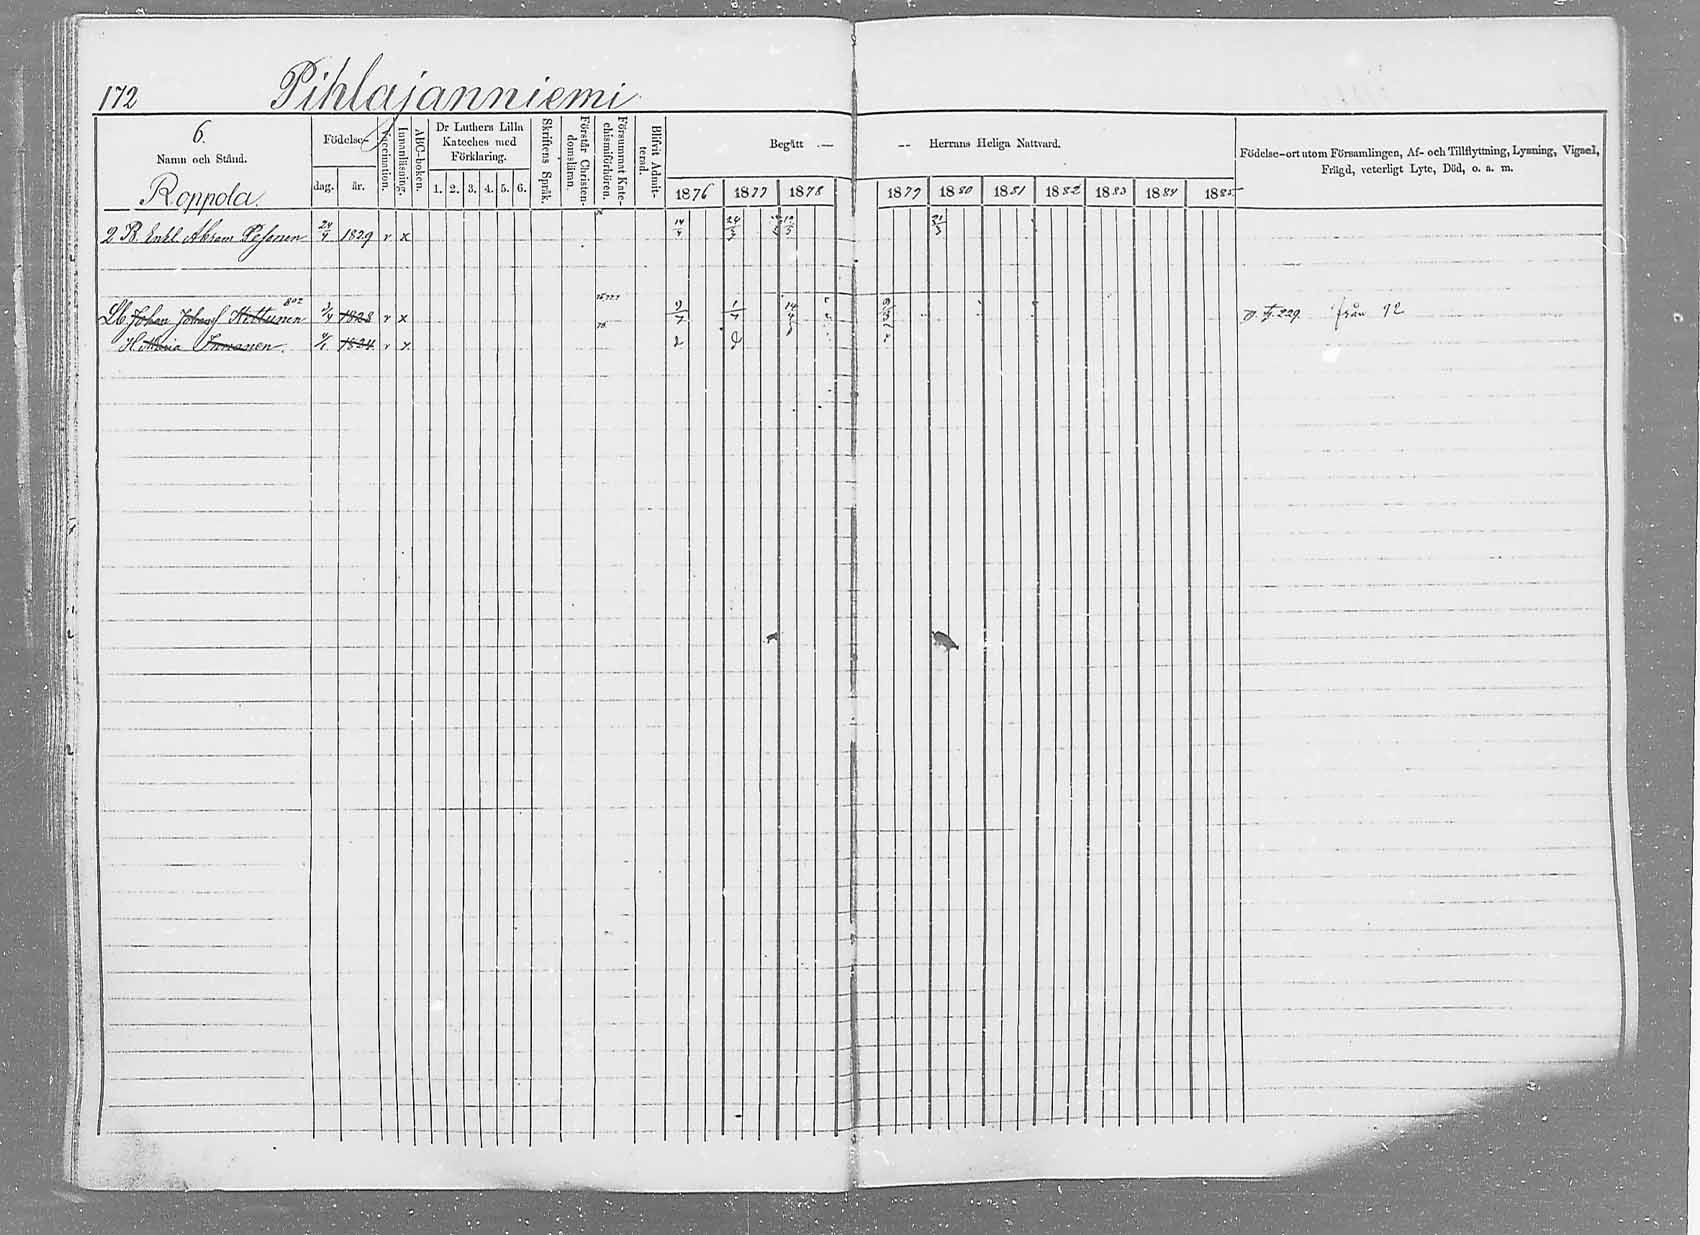 172 Pihlajanniemi
6.
Namn och Stånd.
Roppola
Födelse-
dag. år.
Vaccination.
Innanläsning.
ABC-boken.
Dr Luthers Lilla
Kateches med
Förklaring.
1. 2. 3. 4. 5. 6.
Skriftens Språk.
Förstår Christen-
domsläran.
Försummat Kate-
chismiförhören.
Blifvit Admit-
terad.
Begått — -- Herrans Heliga Nattvard.
1876 1877 1878 1879 1880 1881 1882 1883 1884 1885
Födelse-ort utom Församlingen, Af- och Tillflyttning, Lysning, Vigsel,
Frägd, veterligt Lyte, Död, o. a. m.
2 B. Enkl. Abram Pesonen 24/4 1829 v x 24/3
802
Lb. Johan Johansf Hiltunen 1828 v x 229. från 92
H. Maria Immonen 1824 v x